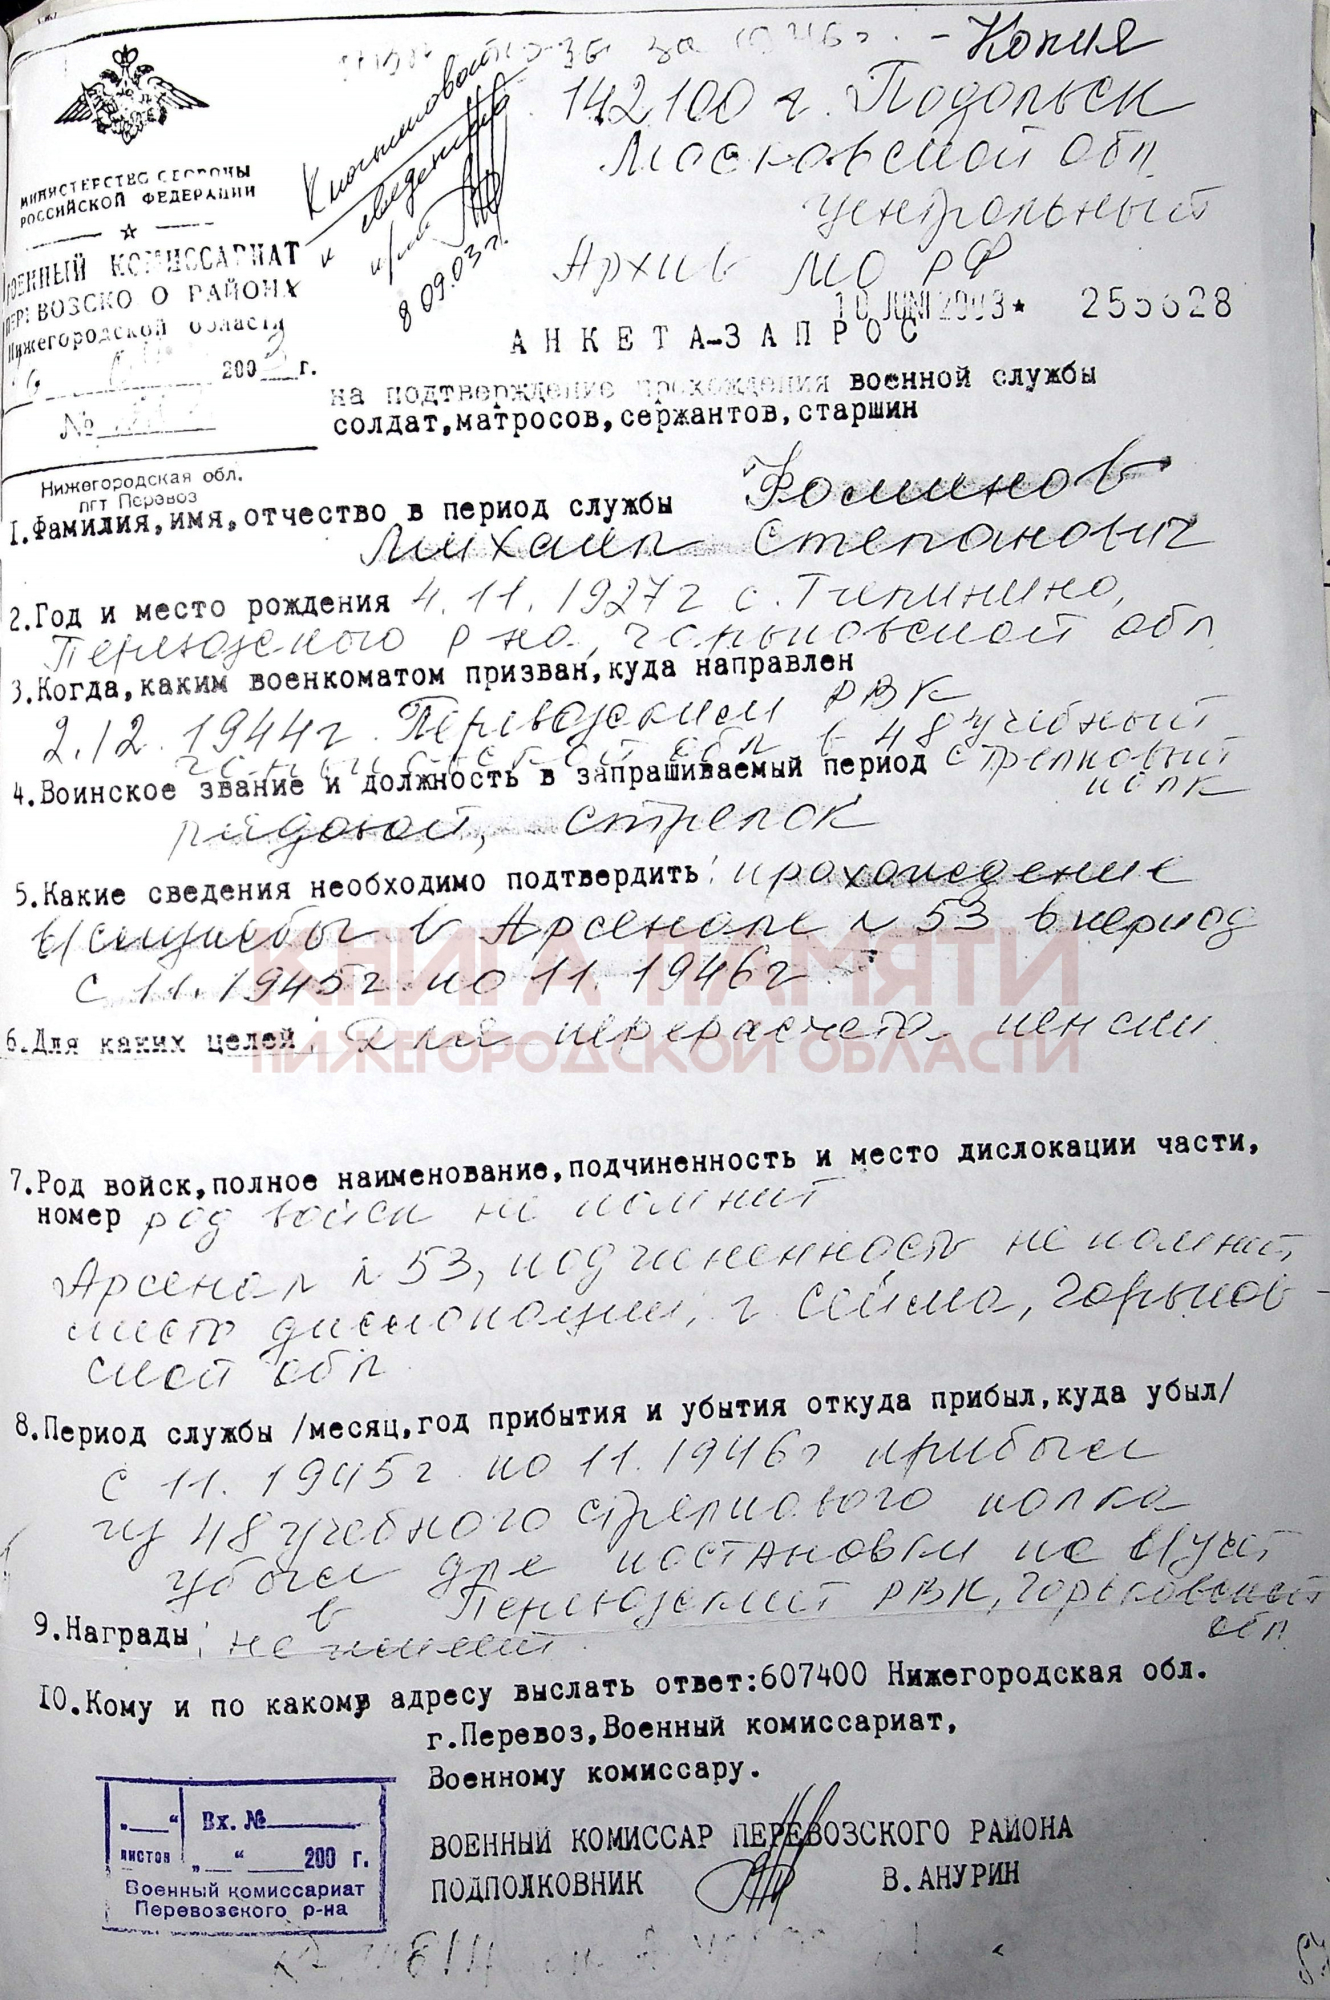 за 1946г. - Копия
142100 г. Подольск
Московской обл.
Центральный
Архив МО РФ
К ногтеновость
к сведению
8 09.03 г.
МИНИСТЕРСТВО ОБОРОНЫ
РОССИЙСКОЙ ФЕДЕРАЦИИ
ВОЕННЫЙ КОМИССАРИАТ
ПЕРЕВОЗСКОГО РАЙОНА
Нижегородской области
2003 г.
№
Нижегородская обл.
пгт Перевоз
10 JUNI 2003 * 255628
АНКЕТА-ЗАПРОС
на подтверждение прохождения военной службы
солдат,матросов,сержантов,старшин
1.Фамилия,имя,отчество в период службы Фоминов
Михаил Степанович
2.Год и место рождения 4.11.1927г с. Тилинино,
Перевозского р-на, Горьковской обл
3.Когда,каким военкоматом призван,куда направлен
2.12.1944г. Перевозским РВК
Горьковской обл в 48 учебный
стрелковый
полк
4.Воинское звание и должность в запрашиваемый период
рядовой, стрелок
5.Какие сведения необходимо подтвердить: прохождение
в/службы в Арсенале N 53 в период
с 11.1945г. по 11.1946г
6.Для каких целей: Для перерасчета пенсии
КНИГА ПАМЯТИ
НИЖЕГОРОДСКОЙ ОБЛАСТИ
7.Род войск,полное наименование,подчиненность и место дислокации части,
номер род войск не помнит
Арсенал N 53, подчиненность не помнит,
место дислокации, г. Сейма, Горьков-
ской обл.
8.Период службы /месяц,год прибытия и убытия откуда прибыл,куда убыл/
с 11.1945г. по 11.1946г прибыл
из 48 учебного стрелкового полка
убыл для постановки на в/учет
в Перевозский РВК, Горьковской
обл.
9.Награды: не имеет
10.Кому и по какому адресу выслать ответ:607400 Нижегородская обл.
г.Перевоз,Военный комиссариат,
Военному комиссару.
ВОЕННЫЙ КОМИССАР ПЕРЕВОЗСКОГО РАЙОНА
ПОДПОЛКОВНИК В.АНУРИН
„___“ Вх. №
листов „__“ ____200 г.
Военный комиссариат
Перевозского р-на